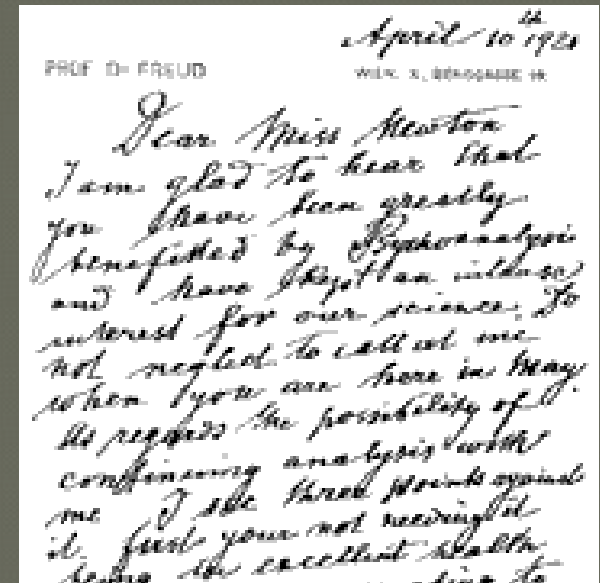 April 10th 192
PROF. Dr FREUD
WIEN, X., BERGGASSE 19.
Dear Miss Newton
I am glad to hear that
you have been greatly
benefitted by Psychoanalysis
and have kept an intense
interest for our science. Do
not neglect to call at me
when you are here in May.
As regards the possibility of
continuing analysis with
me I see three points against
it. first your not needing it
being in excellent health
to